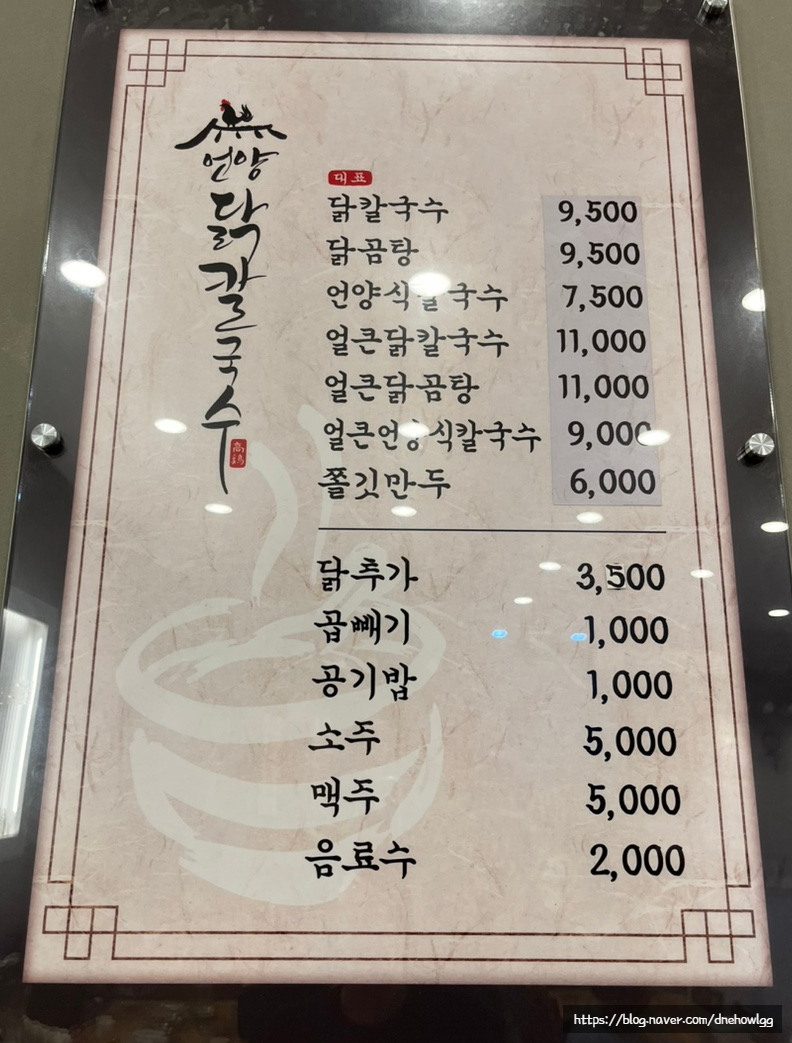 언양
닭칼국수
대표
닭칼국수 9,500
닭곰탕 9,500
언양식칼국수 7,500
얼큰닭칼국수 11,000
얼큰닭곰탕 11,000
얼큰언양식칼국수 9,000
쫄깃만두 6,000
닭추가 3,500
곱빼기 1,000
공기밥 1,000
소주 5,000
맥주 5,000
음료수 2,000
https://blog.naver.com/dnehowlgg